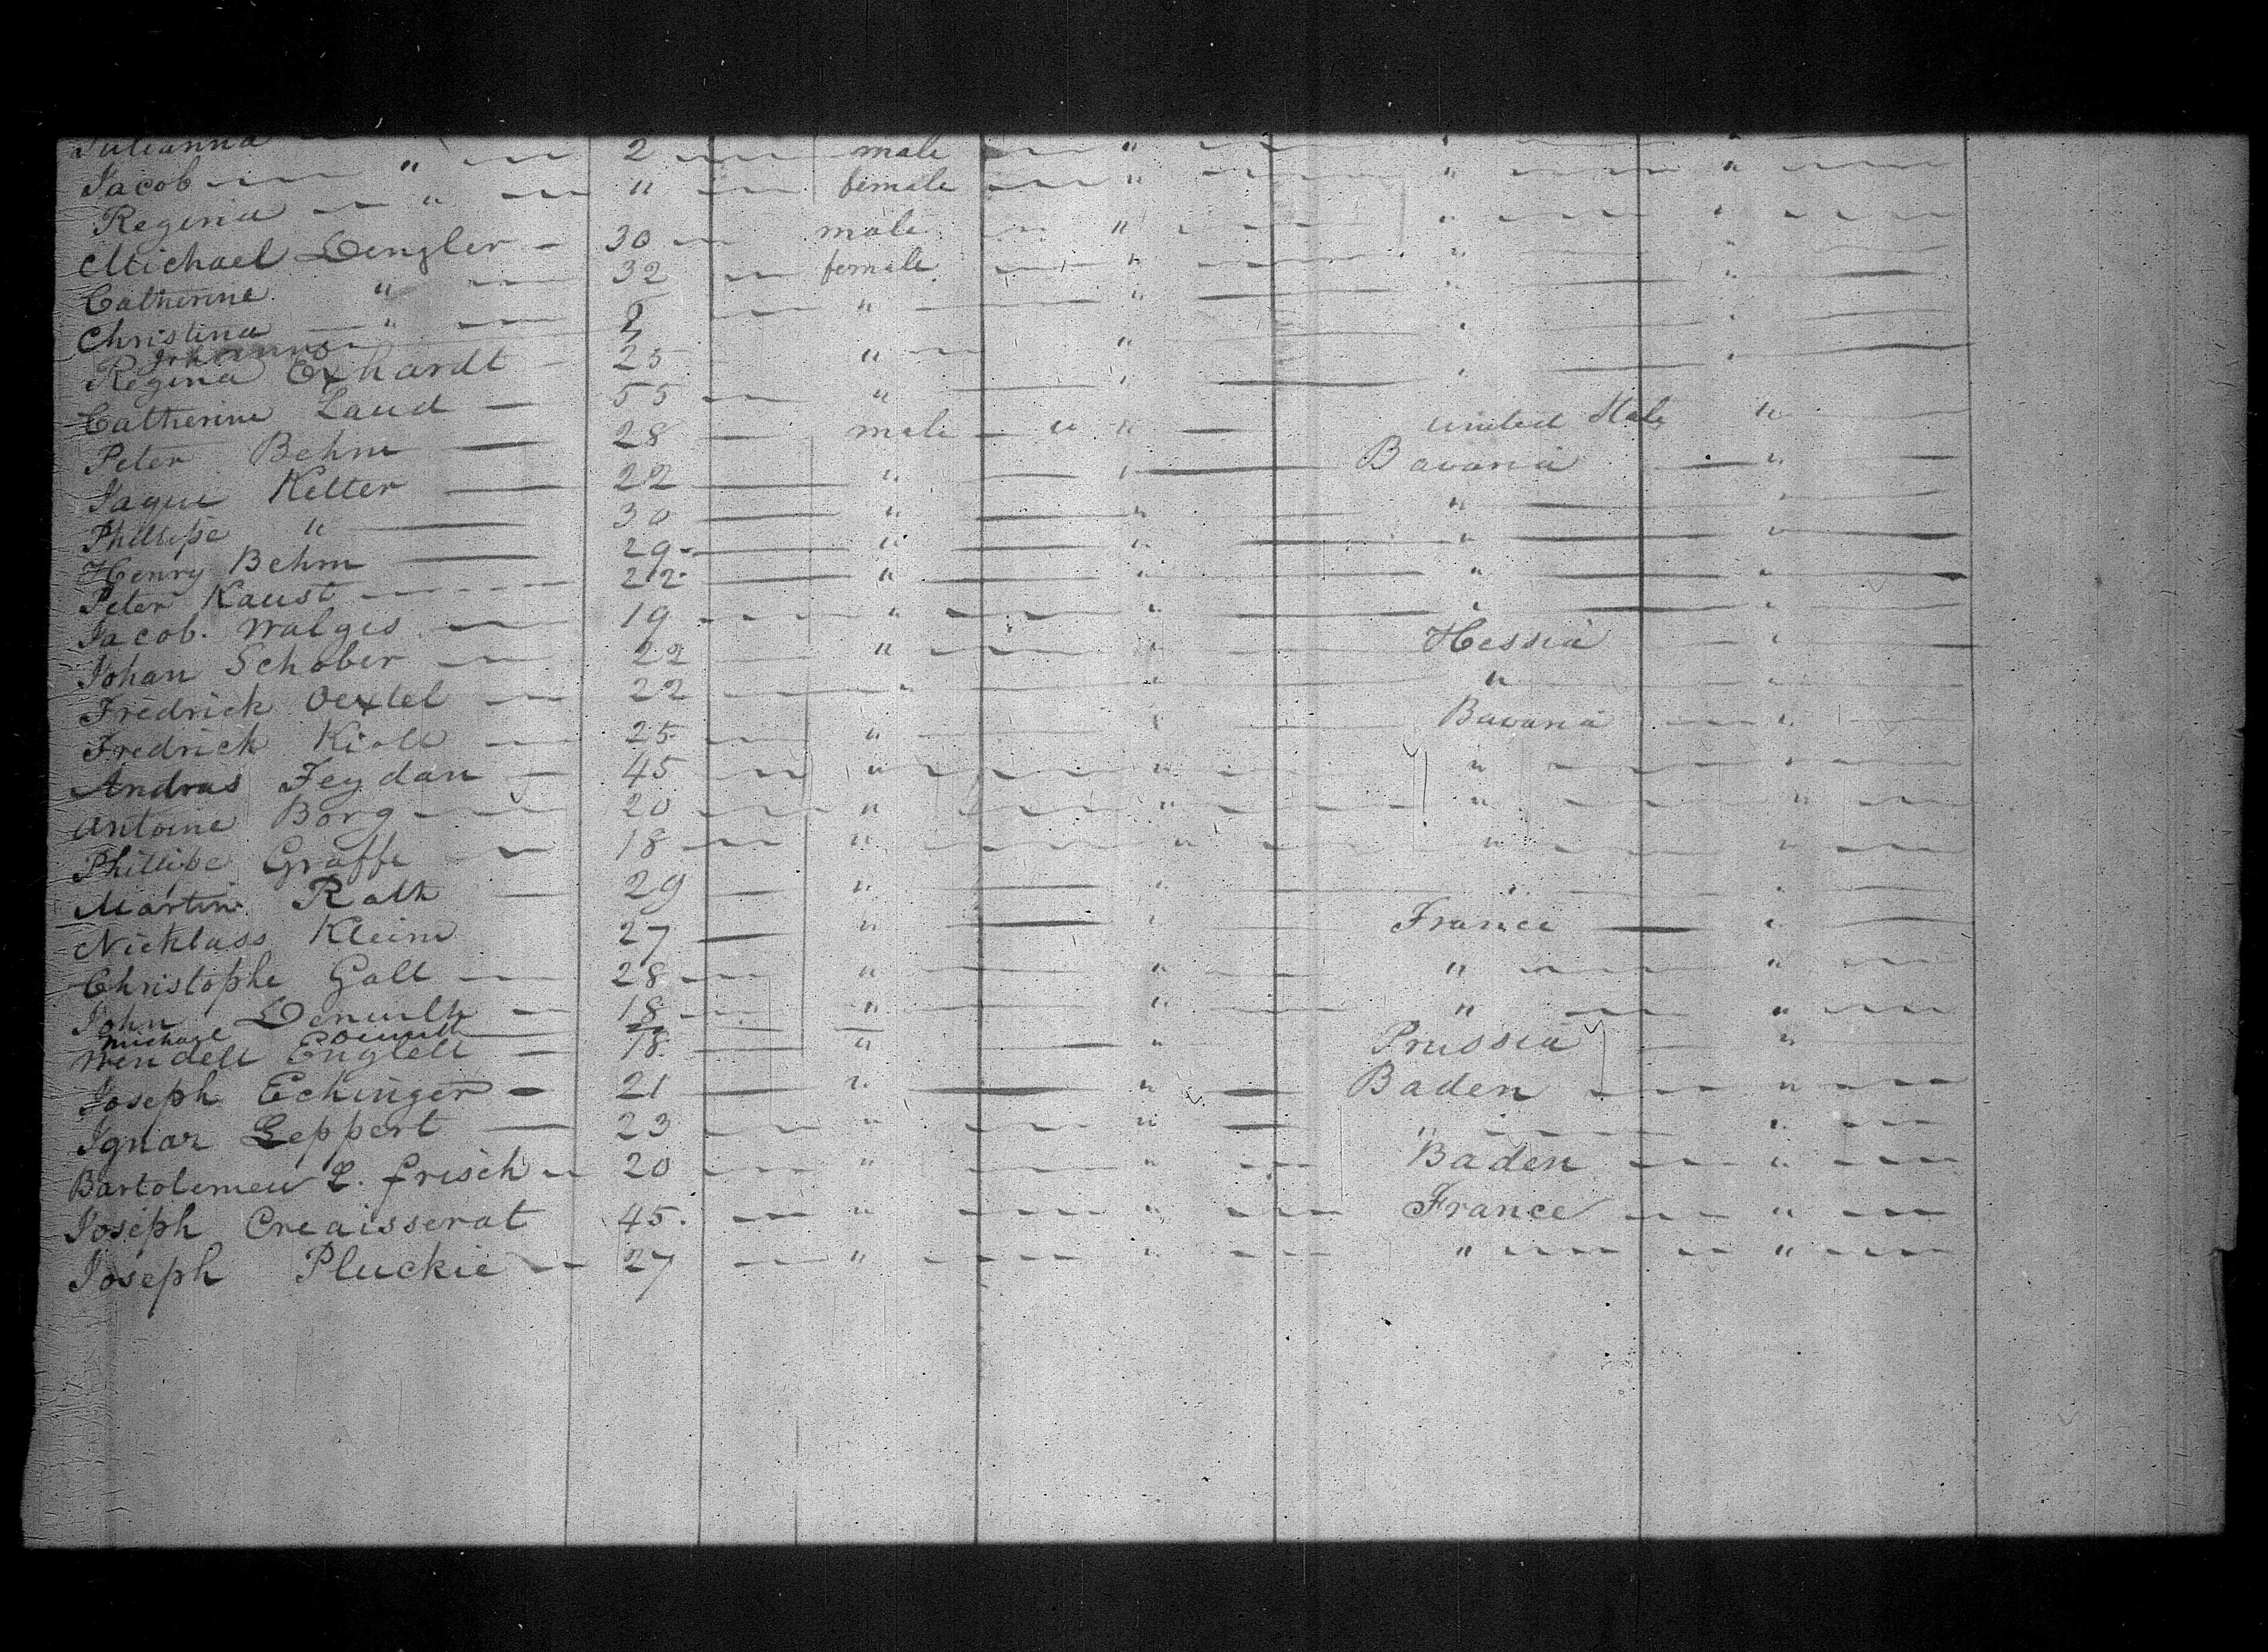 Julianna
Jacob " 2 male " " "
Regina " " female " " "
Michael Dengler 30 male " " "
Catherine " 32 female " " "
Christina " " " " "
Johanna
Regina Exhardt 25 " " " "
Catherine Laud 55 " " "
Peter Behm 28 male " " United State "
Jaque Keller 22 " " Bavaria "
Phillipe " 30 " " " "
Henry Behm 29 " " " "
Peter Kaust 22 " " " "
Jacob Walges 19 " " " "
Johan Schober 22 " " Hessia "
Fredrick Oextel 22 " " " "
Fredrick Kioll 25 " " Bavaria "
Andras Feydan 45 " " " "
Antoine Borg 20 " " " "
Phillipe Graffe 18 " " " "
Martin Rath 29 " " " "
Nicklass Kleim 27 " " France "
Christophe Gall 28 " " " "
John Denulh 18 " " " "
Michael
Wendell Englell 18 " " Prussia "
Joseph Echinger 21 " " Baden "
Ignaz Geppert 23 " " " "
Bartolemew L. frisch 20 " " Baden "
Joseph Creaisserat 45 " " France "
Joseph Pluckie 27 " " " "